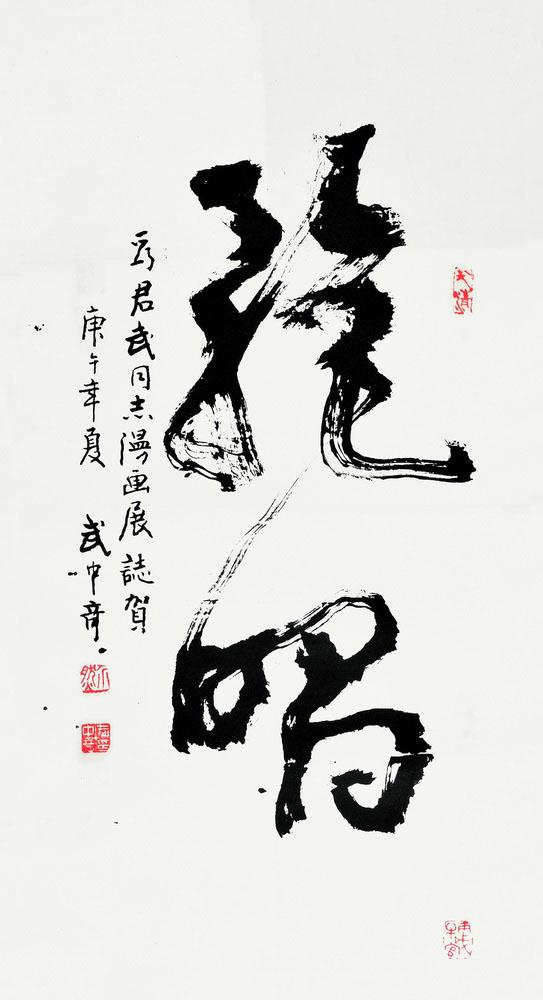 絶唱
为君武同志漫画展誌賀
庚午年夏 武中奇